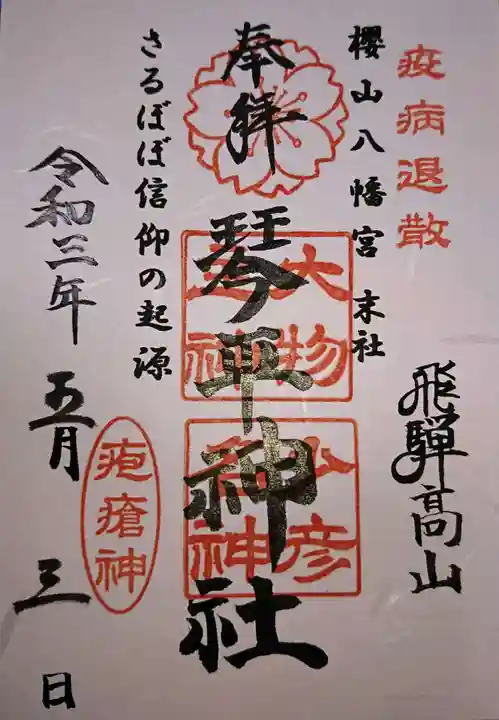 疫病退散
飛騨高山
櫻山八幡宮 末社
奉拝
琴平神社
大物主神
少彦名神
さるぼぼ信仰の起源
疱瘡神
令和三年 五月 三日